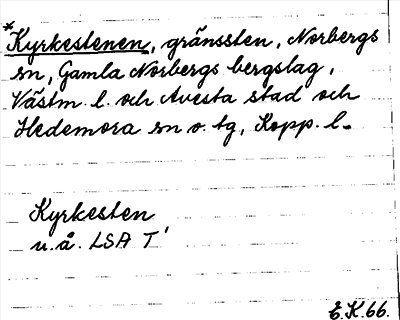 *Kyrkestenen, gränssten, Norbergs
sn, Gamla Norbergs bergslag,
Västm. l. och Avesta stad och
Hedemora sn o. tg, Kopp. l.
Kyrkesten
u.å. LSA T'
E.K.66.